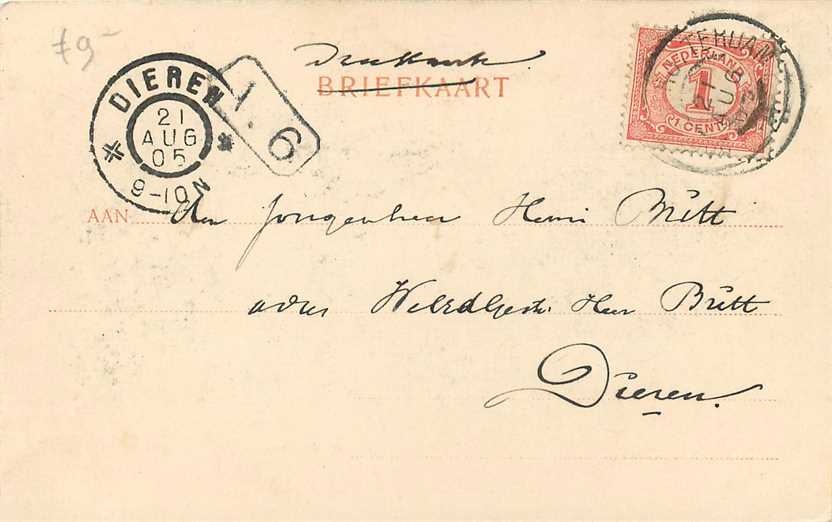 f9-
Drukwerk
BRIEFKAART
DIEREN
21
AUG
05
9-10N
1.6
NEDERLAND
1
1 CENT
AAN den Jongenheer Henri Britt
adres WelEdGestr. Heer Britt
Dieren.